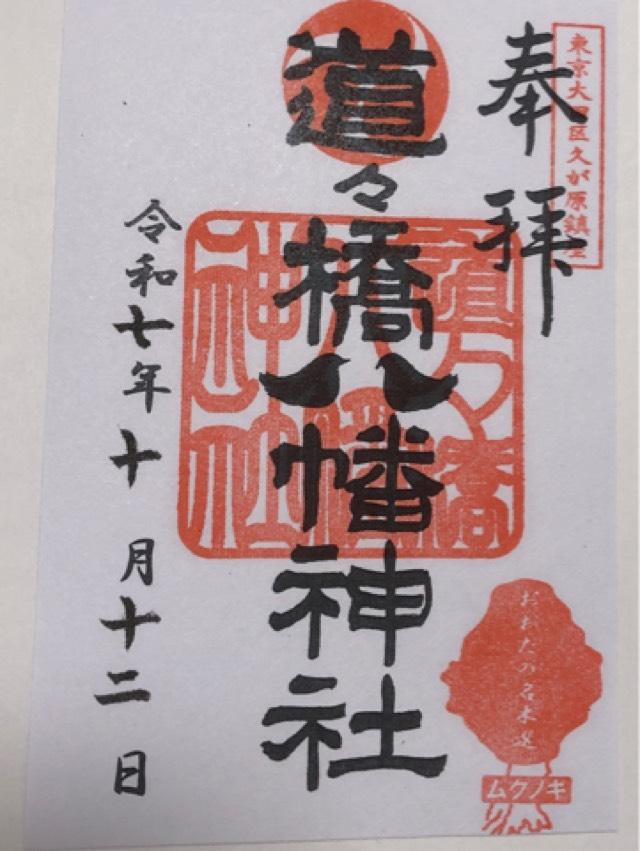 奉拝
東京大田区久が原鎮座
道々橋八幡神社
道々橋
八幡
神社
令和七年十月十二日
おおたの名木選
ムクノキ